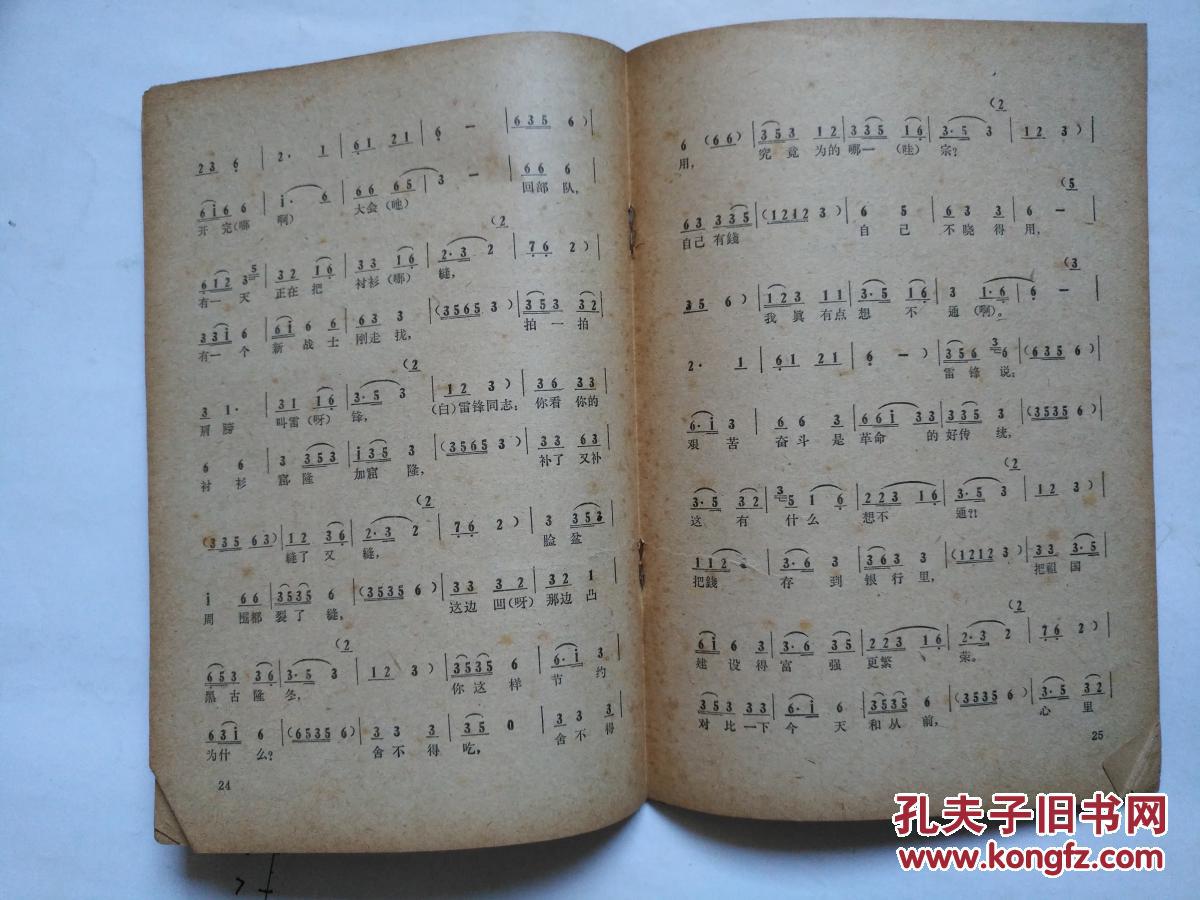 2 3 6 | 2· 1 | 6 1 2 1 | 6 — | (6 3 5 6) |
6 i 6 6 | i· 6 | 6 6 6 5 | 3 — | 6 6 6 |
开 完(哪 啊) 大会(吔) 回部 队,
(2
6 1 2 3 5 | 3 2 1 6 | 3 3 1 6 | 2· 3 2 | 7 6 2) |
有一 天 正在 把 衬衫(哪) 縫,
3 3 i 6 | 6 i 6 6 | 6 3 3 | (3 5 6 5 3) | 3 5 3 3 2 |
有一 个 新 战 士 刚走 找, 拍 一 拍
(2
3 1· | 3 1 1 6 | 3· 5 3 | 1 2 3) | 3 6 3 3 |
肩 膀 叫雷(呀) 锋, (白)雷锋同志: 你看 你的
6 6 | 3 3 5 3 | i 3 5 3 | (3 5 6 5 3) | 3 3 6 3 |
衬 衫 窟 隆 加窟 隆, 补了 又补
(2
(3 3 5 6 3) | 1 2 3 6 | 2· 3 2 | 7 6 2) | 3 3 5 3 |
縫了 又 縫, 脸 盆
i 6 6 | 3 5 3 5 6 | (3 5 3 5 6) | 3 3 3 2 | 3 2 1 |
周 围都 裂 了 縫, 这边 凹(呀) 那边 凸
(2
6 5 3 3 6 | 3· 5 3 | 1 2 3) | 3 5 3 5 6 | 6· i 3 |
黑 古 隆 冬, 你 这 样 节 约
6 3 i 6 | (6 5 3 5 6) | 3 3 3 | 3 5 0 | 3 3 3 |
为什 么? 舍 不 得 吃, 舍 不 得
24
(2
6 (6 6) | 3 5 3 1 2 | 3 3 5 1 6 | 3· 5 3 | 1 2 3) |
用, 究 竟 为的 哪一 (哇) 宗?
(5
6 3 3 3 5 | (1 2 1 2 3) | 6 5 | 6 3 3 | 6 — |
自己 有錢 自 己 不 晓得 用,
(3
3 5 6) | 1 2 3 1 1 | 3· 5 1 6 | 3 1· 6 | 6 — |
我 眞 有点 想 不 通 (啊)。
2· 1 | 6 1 2 1 | 6 — ) | 3 5 6 6 | (6 3 5 6) |
雷 锋 说:
6· i 3 | 6 6 3 | 6 6 i 3 | 3 3 5 3 | (3 5 3 5 6) |
艰 苦 奋 斗 是 革命 的 好传 统,
(2
3· 5 3 2 | 5 1 6 | 2 2 3 1 6 | 3· 5 3 | 1 2 3) |
这 有 什 么 想不 通?!
1 1 2 | 3· 6 3 | 3 6 3 3 | (1 2 1 2 3) | 3 3 3· 5 |
把錢 存 到 银 行 里, 把祖 国
(2
6 i 6 3 | 3· 6 3 5 | 2 2 3 1 6 | 2· 3 2 | 7 6 2) |
建 设 得 富 强 更繁 荣。
3 5 3 3 3 | 6· i 6 | 3 5 3 5 6 | (3 5 3 5 6) | 3· 5 3 2 |
对 比 一下 今 天 和从 前, 心 里
25
孔夫子旧书网
www.kongfz.com